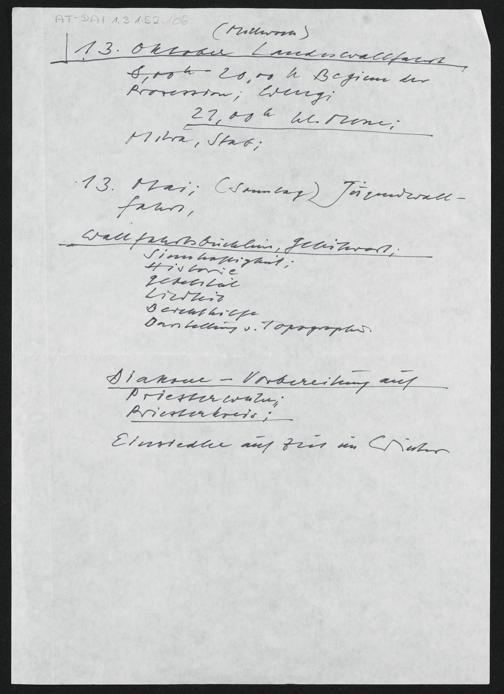 AT-DAI 1.3.1.52.106
(Mittwoch)
13. Oktober Landeswallfahrt
8,00 h - 20,00 h Beginn der
Prozession;
21,00 h hl. Messe;
Mitra, Stab;
13. Mai; (Sonntag) Jugendwall-
fahrt,
Wallfahrtsbüchlein, Geleitwort;
Sinnhaftigkeit;
Historie
Gebetsteil
Liedteil
Beichthilfe
Darstellung v. Topographie
Diakone - Vorbereitung auf
Priesterweihe;
Priesterkreis;
Einsiedler auf Zeit im Winter